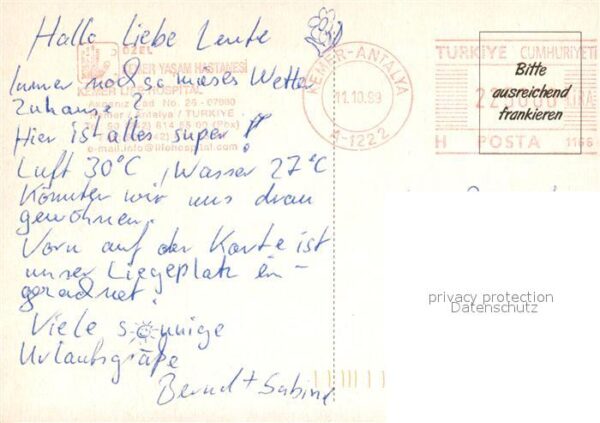 Hallo liebe Leute
Immer noch so mieses Wetter
zuhause?
Hier ist alles super!
Luft 30°C, Wasser 27°C
Könnten wir uns dran
gewöhnen.
Vorn auf der Karte ist
unser Liegeplatz ein-
gezeichnet.
Viele sonnige
Urlaubsgrüße
Bernd + Sabine
ÖZEL
KEMER YAŞAM HASTANESİ
KEMER LIFE HOSPITAL
Cad No. 26 - 07980
Kemer / Antalya / TURKIYE
e-mail.info@lifehospital.com
KEMER-ANTALYA
11.10.99
M-1222
TÜRKİYE CUMHURİYETİ
LİRA
H POSTA 1166
Bitte
ausreichend
frankieren
privacy protection
Datenschutz